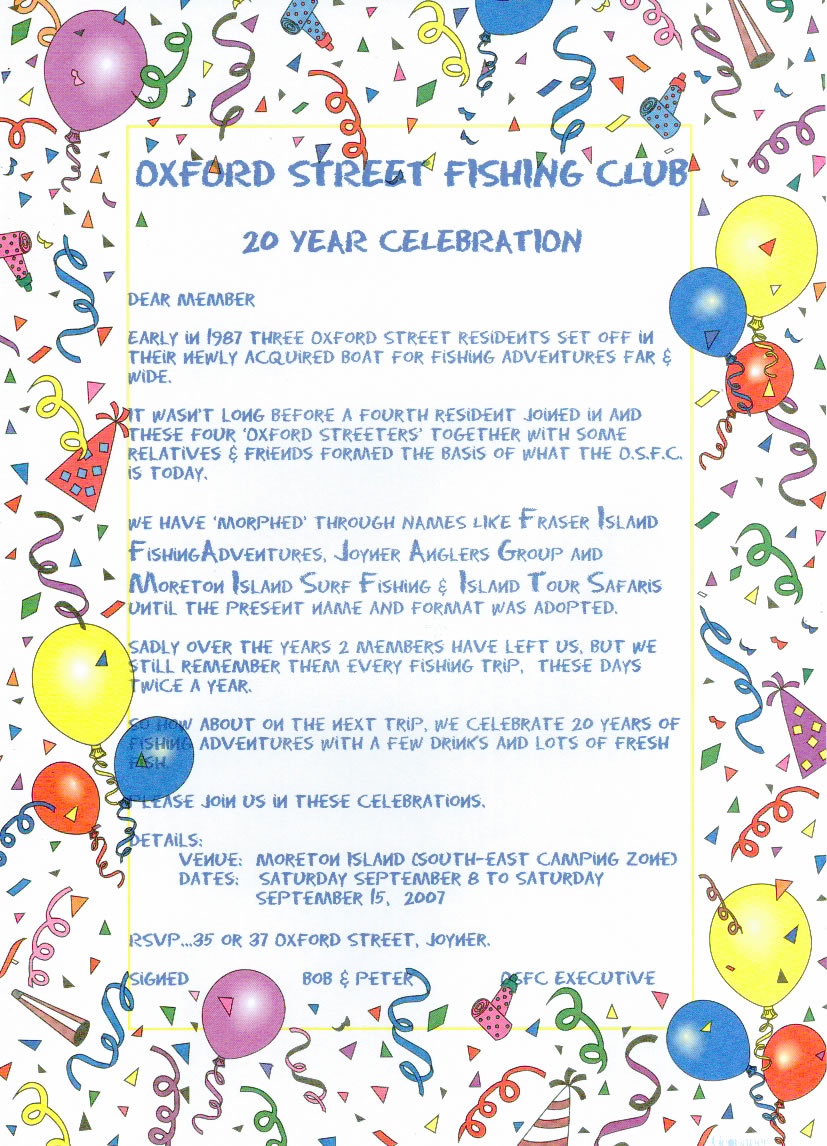 OXFORD STREET FISHING CLUB
20 YEAR CELEBRATION
DEAR MEMBER
EARLY IN 1987 THREE OXFORD STREET RESIDENTS SET OFF IN
THEIR NEWLY ACQUIRED BOAT FOR FISHING ADVENTURES FAR &
WIDE.
IT WASN'T LONG BEFORE A FOURTH RESIDENT JOINED IN AND
THESE FOUR 'OXFORD STREETERS' TOGETHER WITH SOME
RELATIVES & FRIENDS FORMED THE BASIS OF WHAT THE O.S.F.C.
IS TODAY.
WE HAVE 'MORPHED' THROUGH NAMES LIKE FRASER ISLAND
FISHINGADVENTURES, JOYNER ANGLERS GROUP AND
MORETON ISLAND SURF FISHING & ISLAND TOUR SAFARIS
UNTIL THE PRESENT NAME AND FORMAT WAS ADOPTED.
SADLY OVER THE YEARS 2 MEMBERS HAVE LEFT US, BUT WE
STILL REMEMBER THEM EVERY FISHING TRIP, THESE DAYS
TWICE A YEAR.
SO HOW ABOUT ON THE NEXT TRIP, WE CELEBRATE 20 YEARS OF
FISHING ADVENTURES WITH A FEW DRINKS AND LOTS OF FRESH
FISH.
PLEASE JOIN US IN THESE CELEBRATIONS.
DETAILS:
VENUE: MORETON ISLAND (SOUTH-EAST CAMPING ZONE)
DATES: SATURDAY SEPTEMBER 8 TO SATURDAY
SEPTEMBER 15, 2007
RSVP...35 OR 37 OXFORD STREET, JOYNER.
SIGNED BOB & PETER OSFC EXECUTIVE